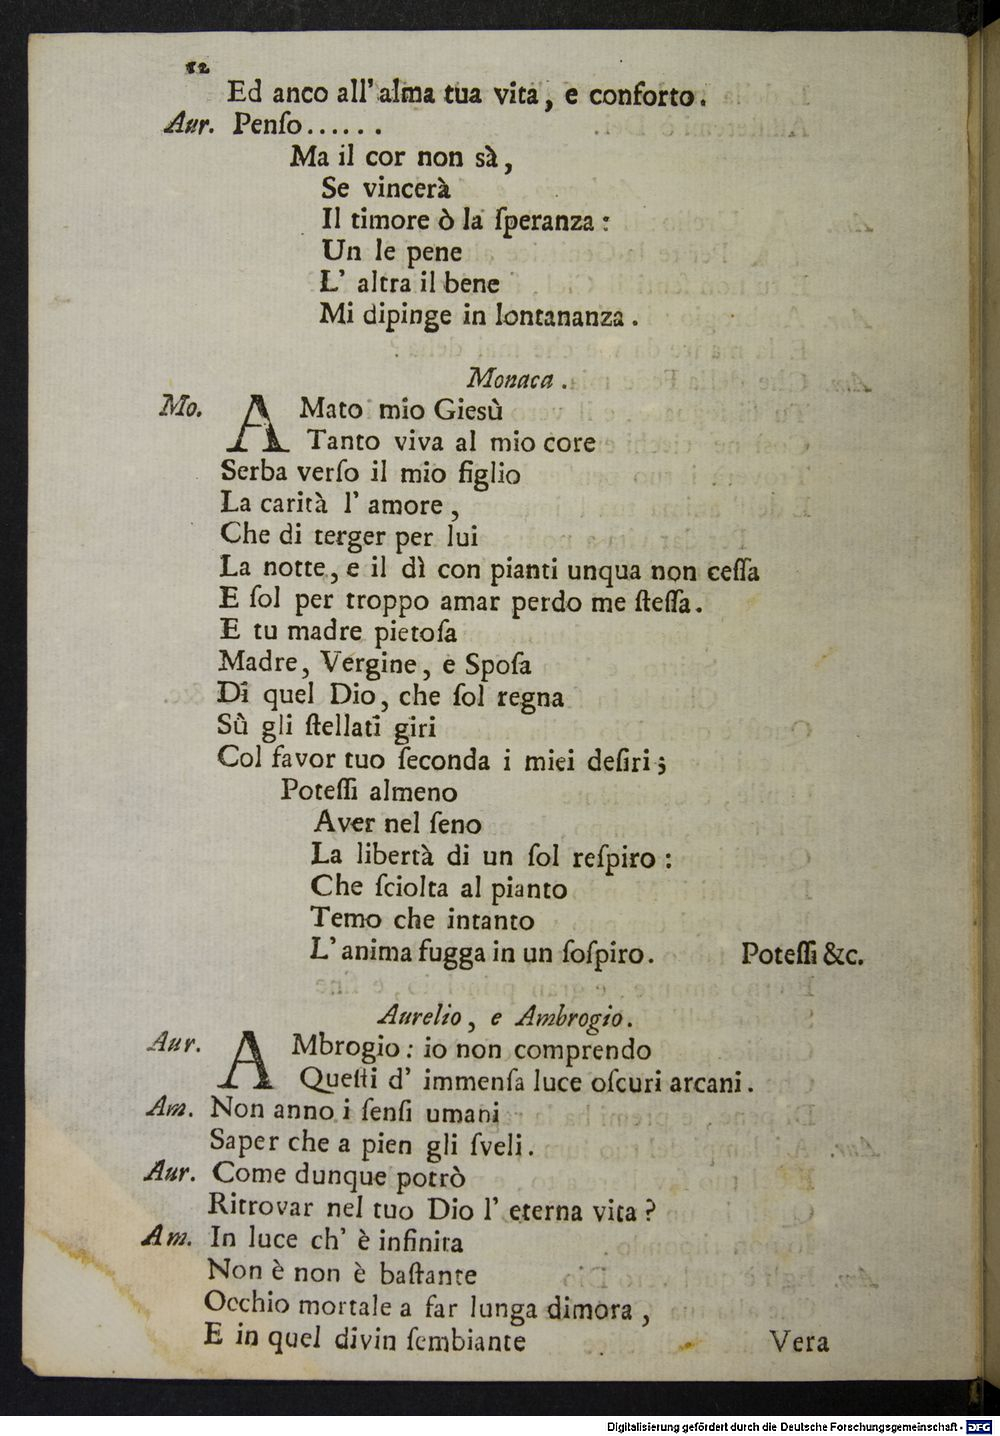 12
Ed anco all' alma tua vita, e conforto.
Aur. Penſo......
Ma il cor non sà,
Se vincerà
Il timore ò la ſperanza:
Un le pene
L' altra il bene
Mi dipinge in lontananza.
Monaca.
Mo. AMato mio Giesù
Tanto viva al mio core
Serba verſo il mio figlio
La carità l' amore,
Che di terger per lui
La notte, e il dì con pianti unqua non ceſſa
E ſol per troppo amar perdo me ſteſſa.
E tu madre pietoſa
Madre, Vergine, e Spoſa
Di quel Dio, che ſol regna
Sù gli ſtellati giri
Col favor tuo ſeconda i miei deſiri;
Poteſſi almeno
Aver nel ſeno
La libertà di un ſol reſpiro:
Che ſciolta al pianto
Temo che intanto
L' anima fugga in un ſoſpiro. Poteſſi &c.
Aurelio, e Ambrogio.
Aur. AMbrogio: io non comprendo
Queſti d' immenſa luce oſcuri arcani.
Am. Non anno i ſenſi umani
Saper che a pien gli ſveli.
Aur. Come dunque potrò
Ritrovar nel tuo Dio l' eterna vita?
Am. In luce ch' è infinita
Non è non è baſtante
Occhio mortale a far lunga dimora,
E in quel divin ſembiante
Vera
Digitalisierung gefördert durch die Deutsche Forschungsgemeinschaft - DFG